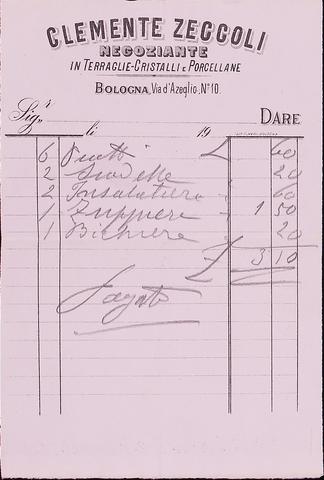 CLEMENTE ZECCOLI
NEGOZIANTE
IN TERRAGLIE-CRISTALLI E PORCELLANE
BOLOGNA, Via d'Azeglio, N.º 10.
Sig.r DARE
li 19
6 Piatti £ 60
2 Scodelle " 20
2 Insalatiere " 60
1 Zuppiera " 1 50
1 Bichiere " 20
£ 3 10
Pagato